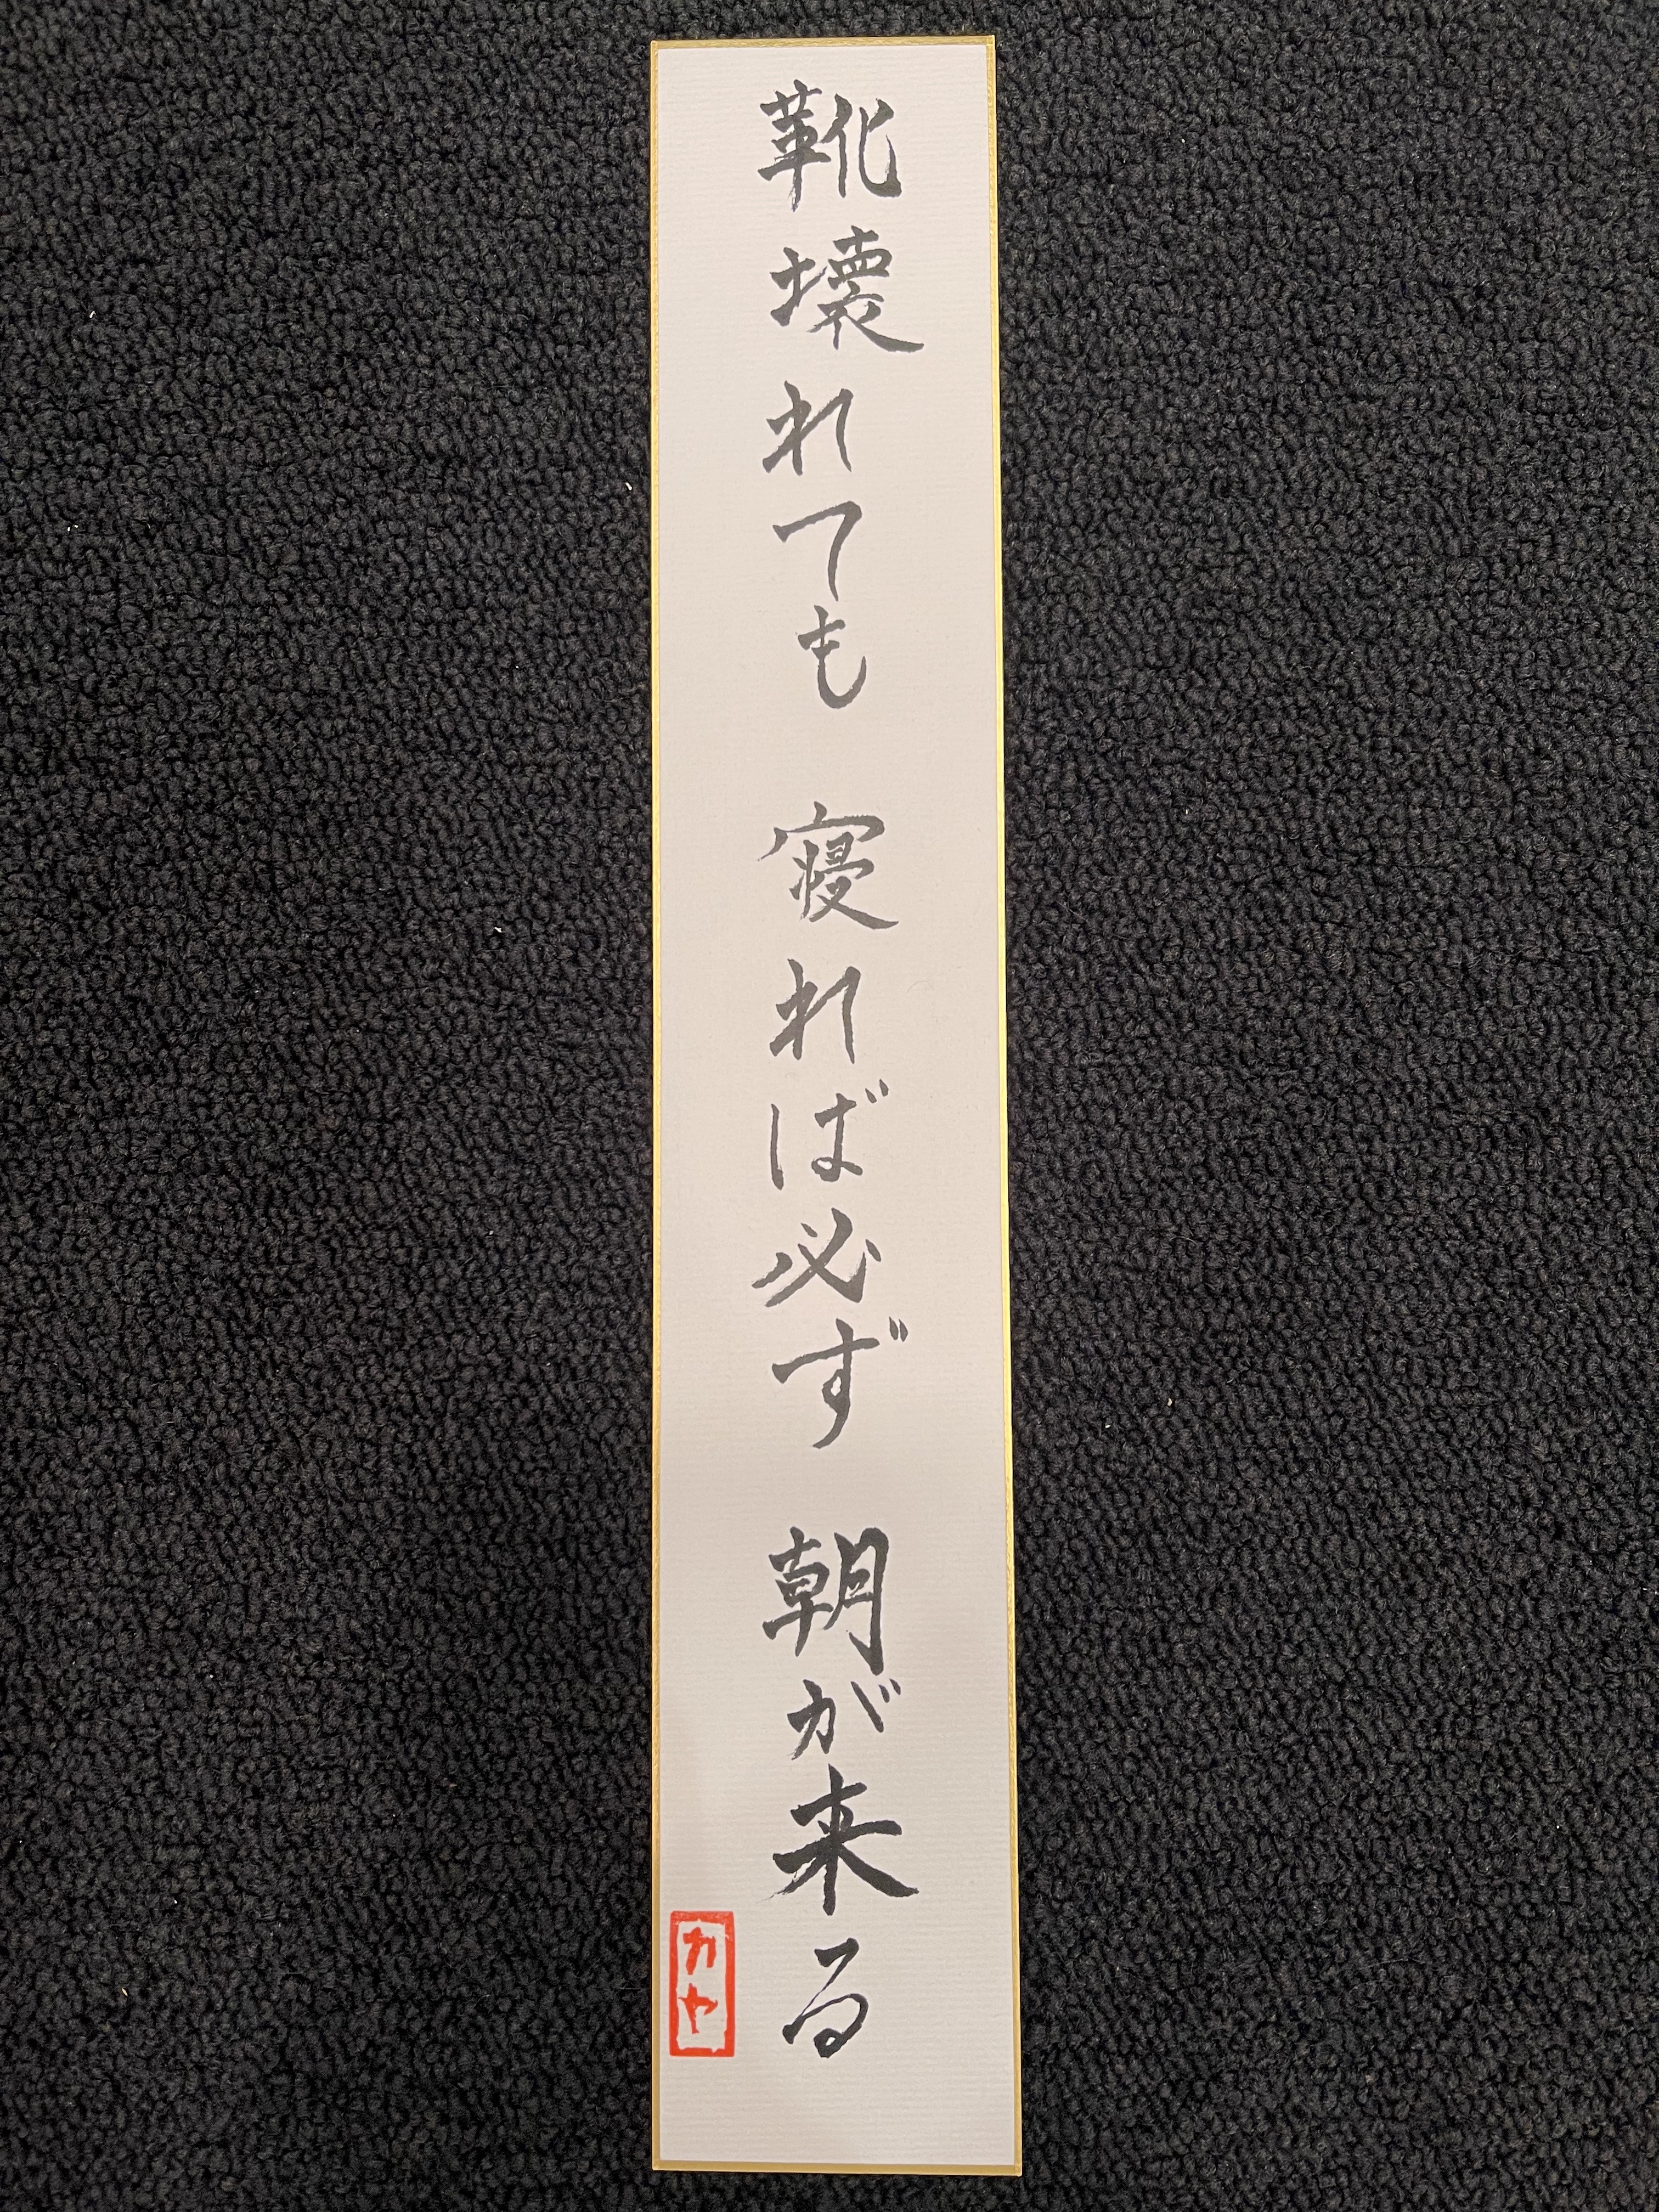 靴壊れても 寝れば必ず 朝が来る
カヤ